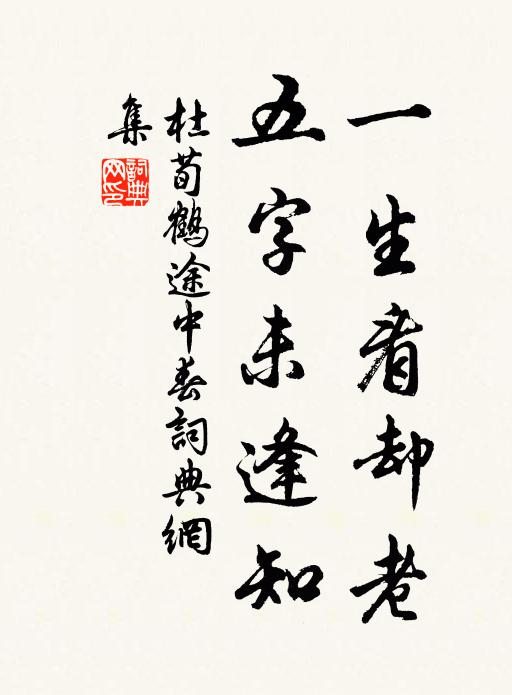 一生看却老
五字未逢知
杜荀鶴途中春詞典網
集
詞典
网印